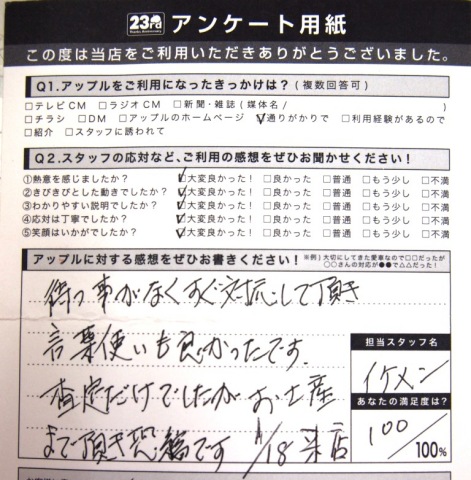 23rd アンケート用紙
Thanks Anniversary
この度は当店をご利用いただきありがとうございました。
Q1.アップルをご利用になったきっかけは？(複数回答可)
□テレビCM □ラジオCM □新聞・雑誌(媒体名/ )
□チラシ □DM □アップルのホームページ ☑通りがかりで □利用経験があるので
□紹介 □スタッフに誘われて
Q2.スタッフの応対など、ご利用の感想をぜひお聞かせください！
①熱意を感じましたか？ ☑大変良かった！ □良かった □普通 □もう少し □不満
②きびきびとした動きでしたか？ ☑大変良かった！ □良かった □普通 □もう少し □不満
③わかりやすい説明でしたか？ ☑大変良かった！ □良かった □普通 □もう少し □不満
④応対は丁寧でしたか？ ☑大変良かった！ □良かった □普通 □もう少し □不満
⑤笑顔はいかがでしたか？ ☑大変良かった！ □良かった □普通 □もう少し □不満
アップルに対する感想をぜひお書きください！ ※例）大切にしてきた愛車なので□□だったが
○○さんの対応が●●で△△だった！
待つ事がなくすぐ対応して頂き
言葉使いも良かったです。
査定だけでしたが お土産
まで頂き恐縮です 1/18 来店
担当スタッフ名
イケメン
あなたの満足度は？
100/100%